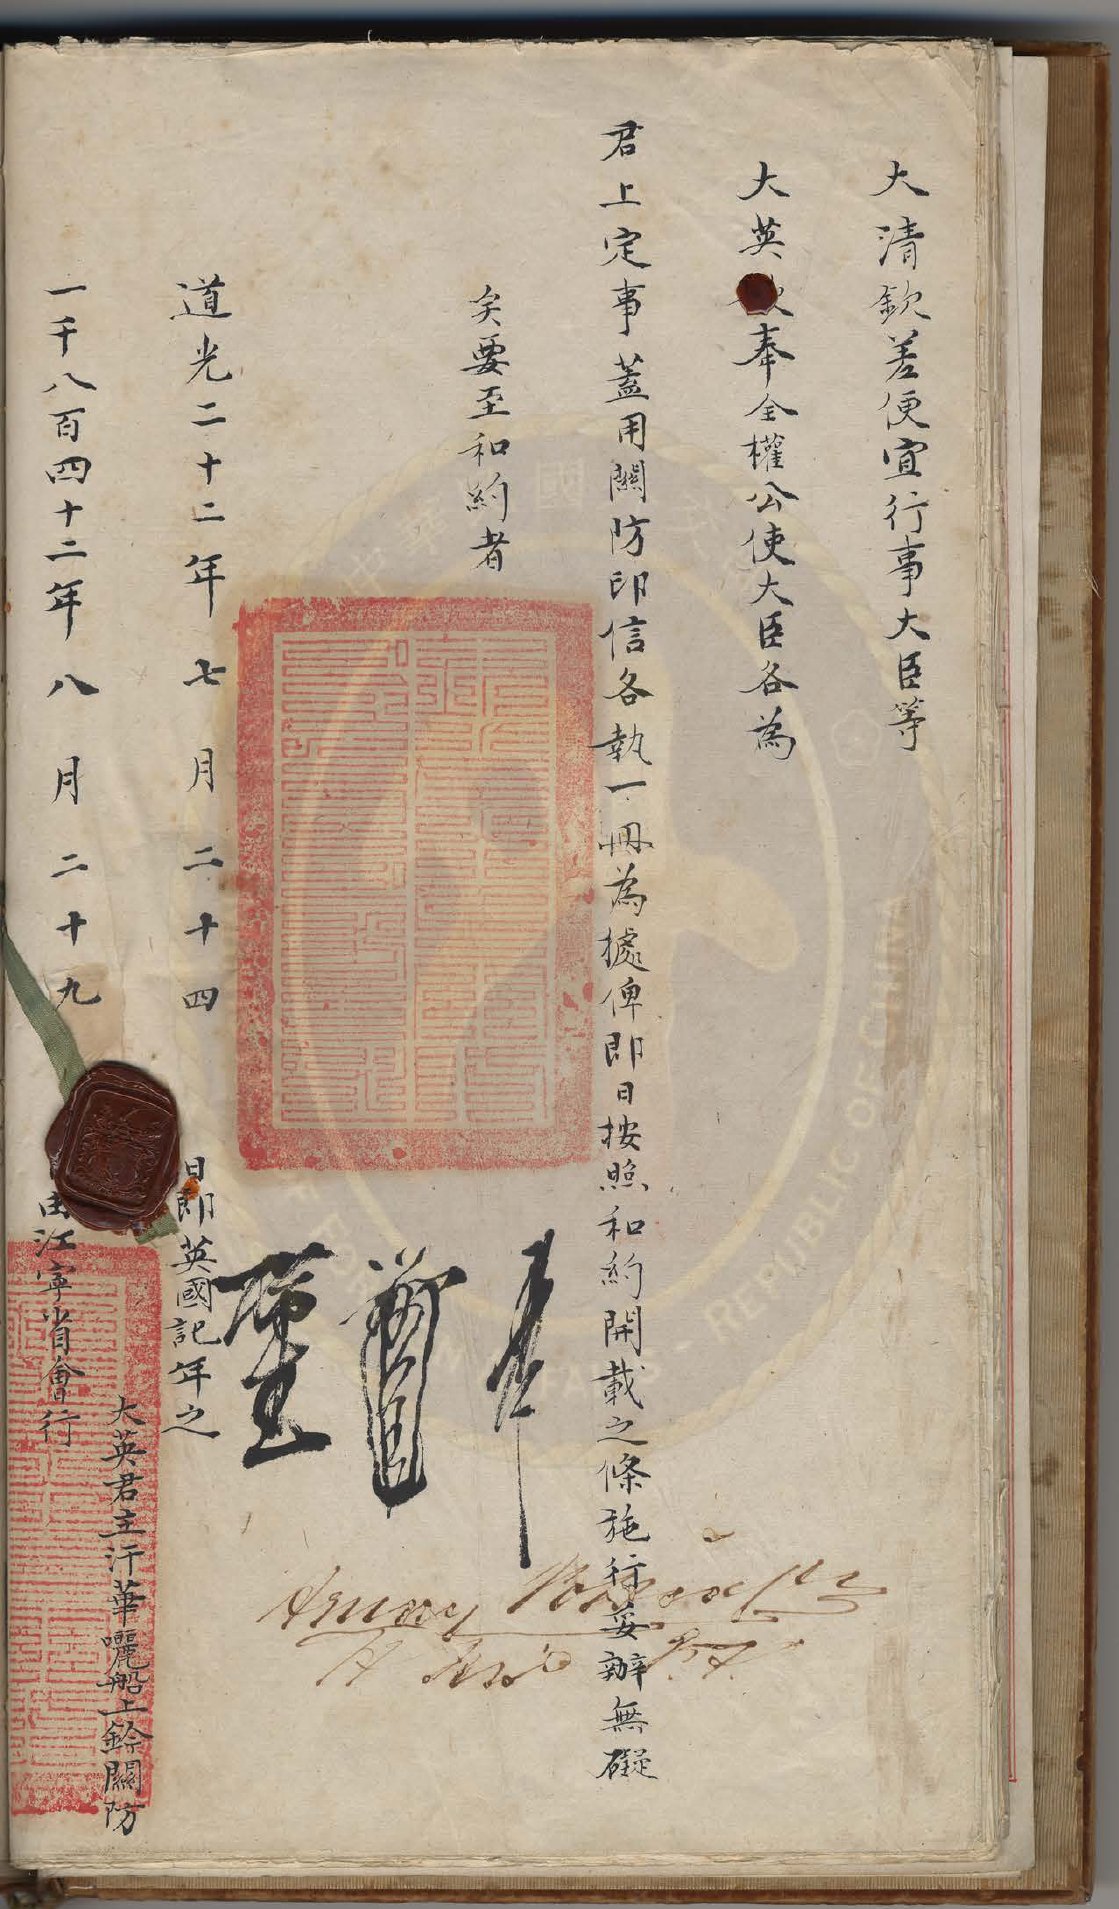 大清欽差便宜行事大臣等
大英欽奉全權公使大臣各為
君上定事蓋用關防印信各執一冊為據俾即日按照和約開載之條施行妥辦無礙
矣要至和約者
道光二十二年七月二十四日即英國記年之
一千八百四十二年八月二十九
由江寧省會行
大英君主汗華囇船上鈐關防
Henry Pottinger